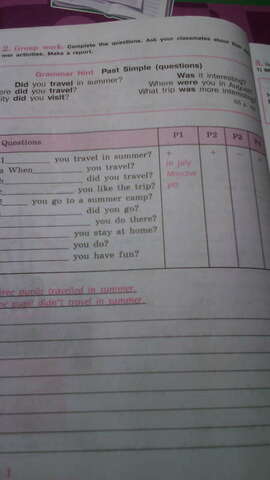 2. Group work. Complete the questions. Ask your classmates about their
activities. Make a report.
Grammar Hint Past Simple (questions)
Did you travel in summer? Was it interesting?
ere did you travel? Where were you in August?
ity did you visit? What trip was more interesting
Questions P1 P2 P3
1 you travel in summer? + + –
a When you travel? in July
did you travel? Moscow
you like the trip? yes
you go to a summer camp?
did you go?
you do there?
you stay at home?
you do?
you have fun?
hree pupils travelled in summer.
ne pupil didn't travel in summer.